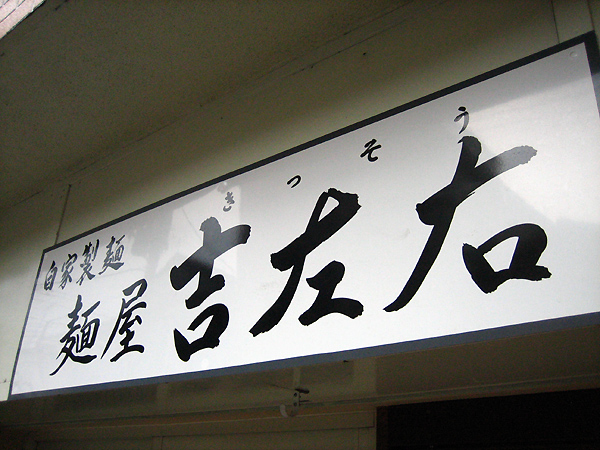 自家製麺
きっそう
麺屋 吉左右